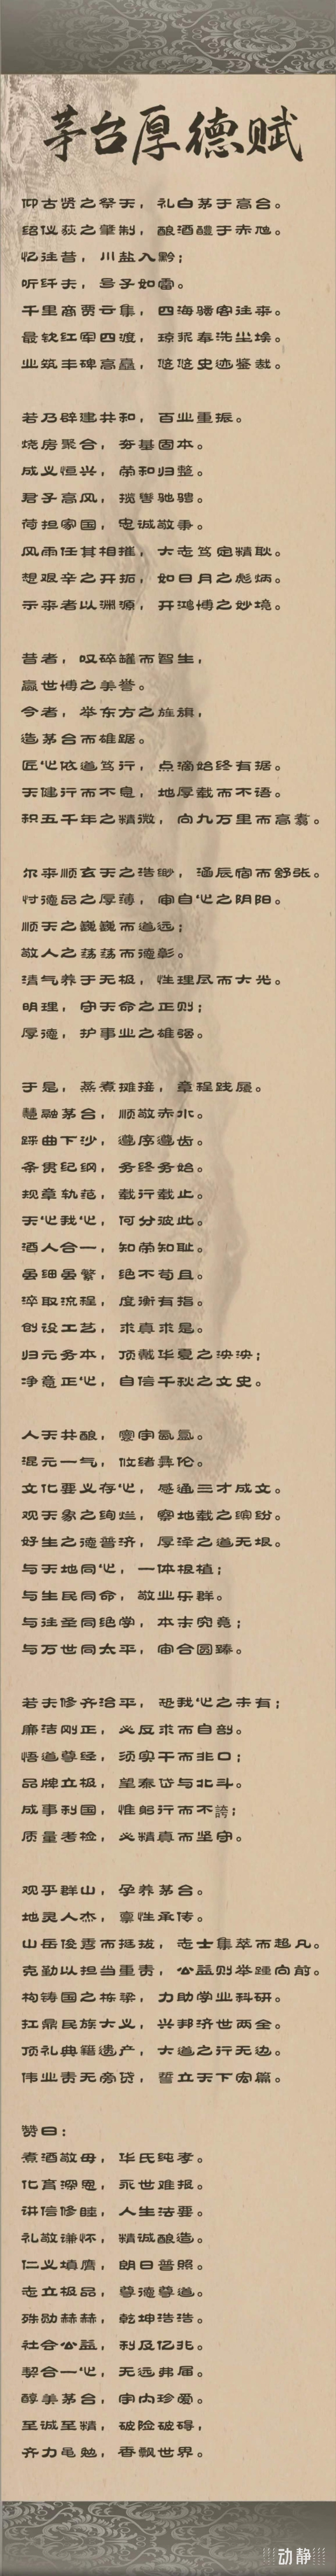 茅台厚德赋
仰古贤之祭天，礼白茅于高台。
绍仪荻之肇制，酿酒醴于赤虺。
忆往昔，川盐入黔；
听纤夫，号子如雷。
千里商贾云集，四海骚客往来。
最钦红军四渡，琼浆奉洗尘埃。
业筑丰碑高矗，悠悠史迹鉴裁。
若乃辟建共和，百业重振。
烧房聚合，夯基固本。
成义恒兴，荣和归整。
君子高风，揽辔驰骋。
荷担家国，忠诚敬事。
风雨任其相摧，大志笃定精耿。
想艰辛之开拓，如日月之彪炳。
示来者以渊源，开鸿博之妙境。
昔者，叹碎罐而智生，
赢世博之美誉。
今者，举东方之旌旗，
造茅台而雄踞。
匠心依道笃行，点滴始终有据。
天健行而不息，地厚载而不语。
积五千年之精微，向九万里而高翥。
尔来顺玄天之浩缈，涵辰宿而舒张。
忖德品之厚薄，审自心之阴阳。
顺天之巍巍而道远；
敬人之荡荡而德彰。
清气养于无极，性理夙而大光。
明理，守天命之正则；
厚德，护事业之雄强。
于是，蒸煮摊接，章程践履。
慧融茅台，顺敬赤水。
踩曲下沙，遵序遵齿。
条贯纪纲，务终务始。
规章轨范，载行载止。
天心我心，何分彼此。
酒人合一，知荣知耻。
虽细虽繁，绝不苟且。
淬取流程，度衡有指。
创设工艺，求真求是。
归元务本，顶戴华夏之泱泱；
净意正心，自信千秋之文史。
人天共酿，寰宇氤氲。
混元一气，攸绪彝伦。
文化要义存心，感通三才成文。
观天象之绚烂，察地载之缤纷。
好生之德普济，厚泽之道无垠。
与天地同心，一体根植；
与生民同命，敬业乐群。
与往圣同绝学，本末究竟；
与万世同太平，审合圆臻。
若夫修齐治平，恐我心之未有；
廉洁刚正，必反求而自剖。
悟道尊经，须实干而非口；
品牌立极，望泰岱与北斗。
成事利国，惟躬行而不誇；
质量考检，必精真而坚守。
观乎群山，孕养茅台。
地灵人杰，禀性承传。
山岳俊秀而挺拔，志士集萃而超凡。
克勤以担当重责，公益则举踵向前。
构铸国之栋梁，力助学业科研。
扛鼎民族大义，兴邦济世两全。
顶礼典籍遗产，大道之行无边。
伟业责无旁贷，誓立天下宏篇。
赞曰：
煮酒敬母，华氏纯孝。
化育深恩，永世难报。
讲信修睦，人生法要。
礼敬谦怀，精诚酿造。
仁义填膺，朗日普照。
志立极品，尊德尊道。
殊勋赫赫，乾坤浩浩。
社会公益，利及亿兆。
契合一心，无远弗届。
醇美茅台，宇内珍爱。
至诚至精，破险破碍，
齐力黾勉，香飘世界。
动静